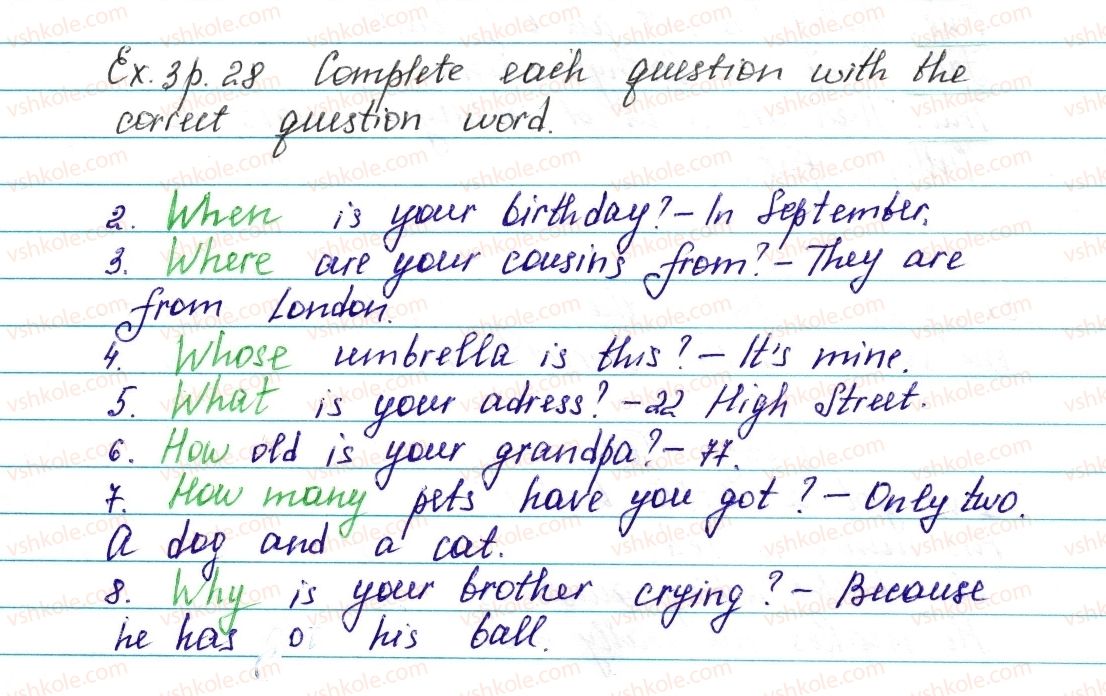 Ex. 3 p. 28 Complete each question with the
correct question word.
2. When is your birthday? – In September.
3. Where are your cousins from? – They are
from London.
4. Whose umbrella is this? – It's mine.
5. What is your adress? – 22 High Street.
6. How old is your grandpa? – 77.
7. How many pets have you got? – Only two.
A dog and a cat.
8. Why is your brother crying? – Because
he has his ball.